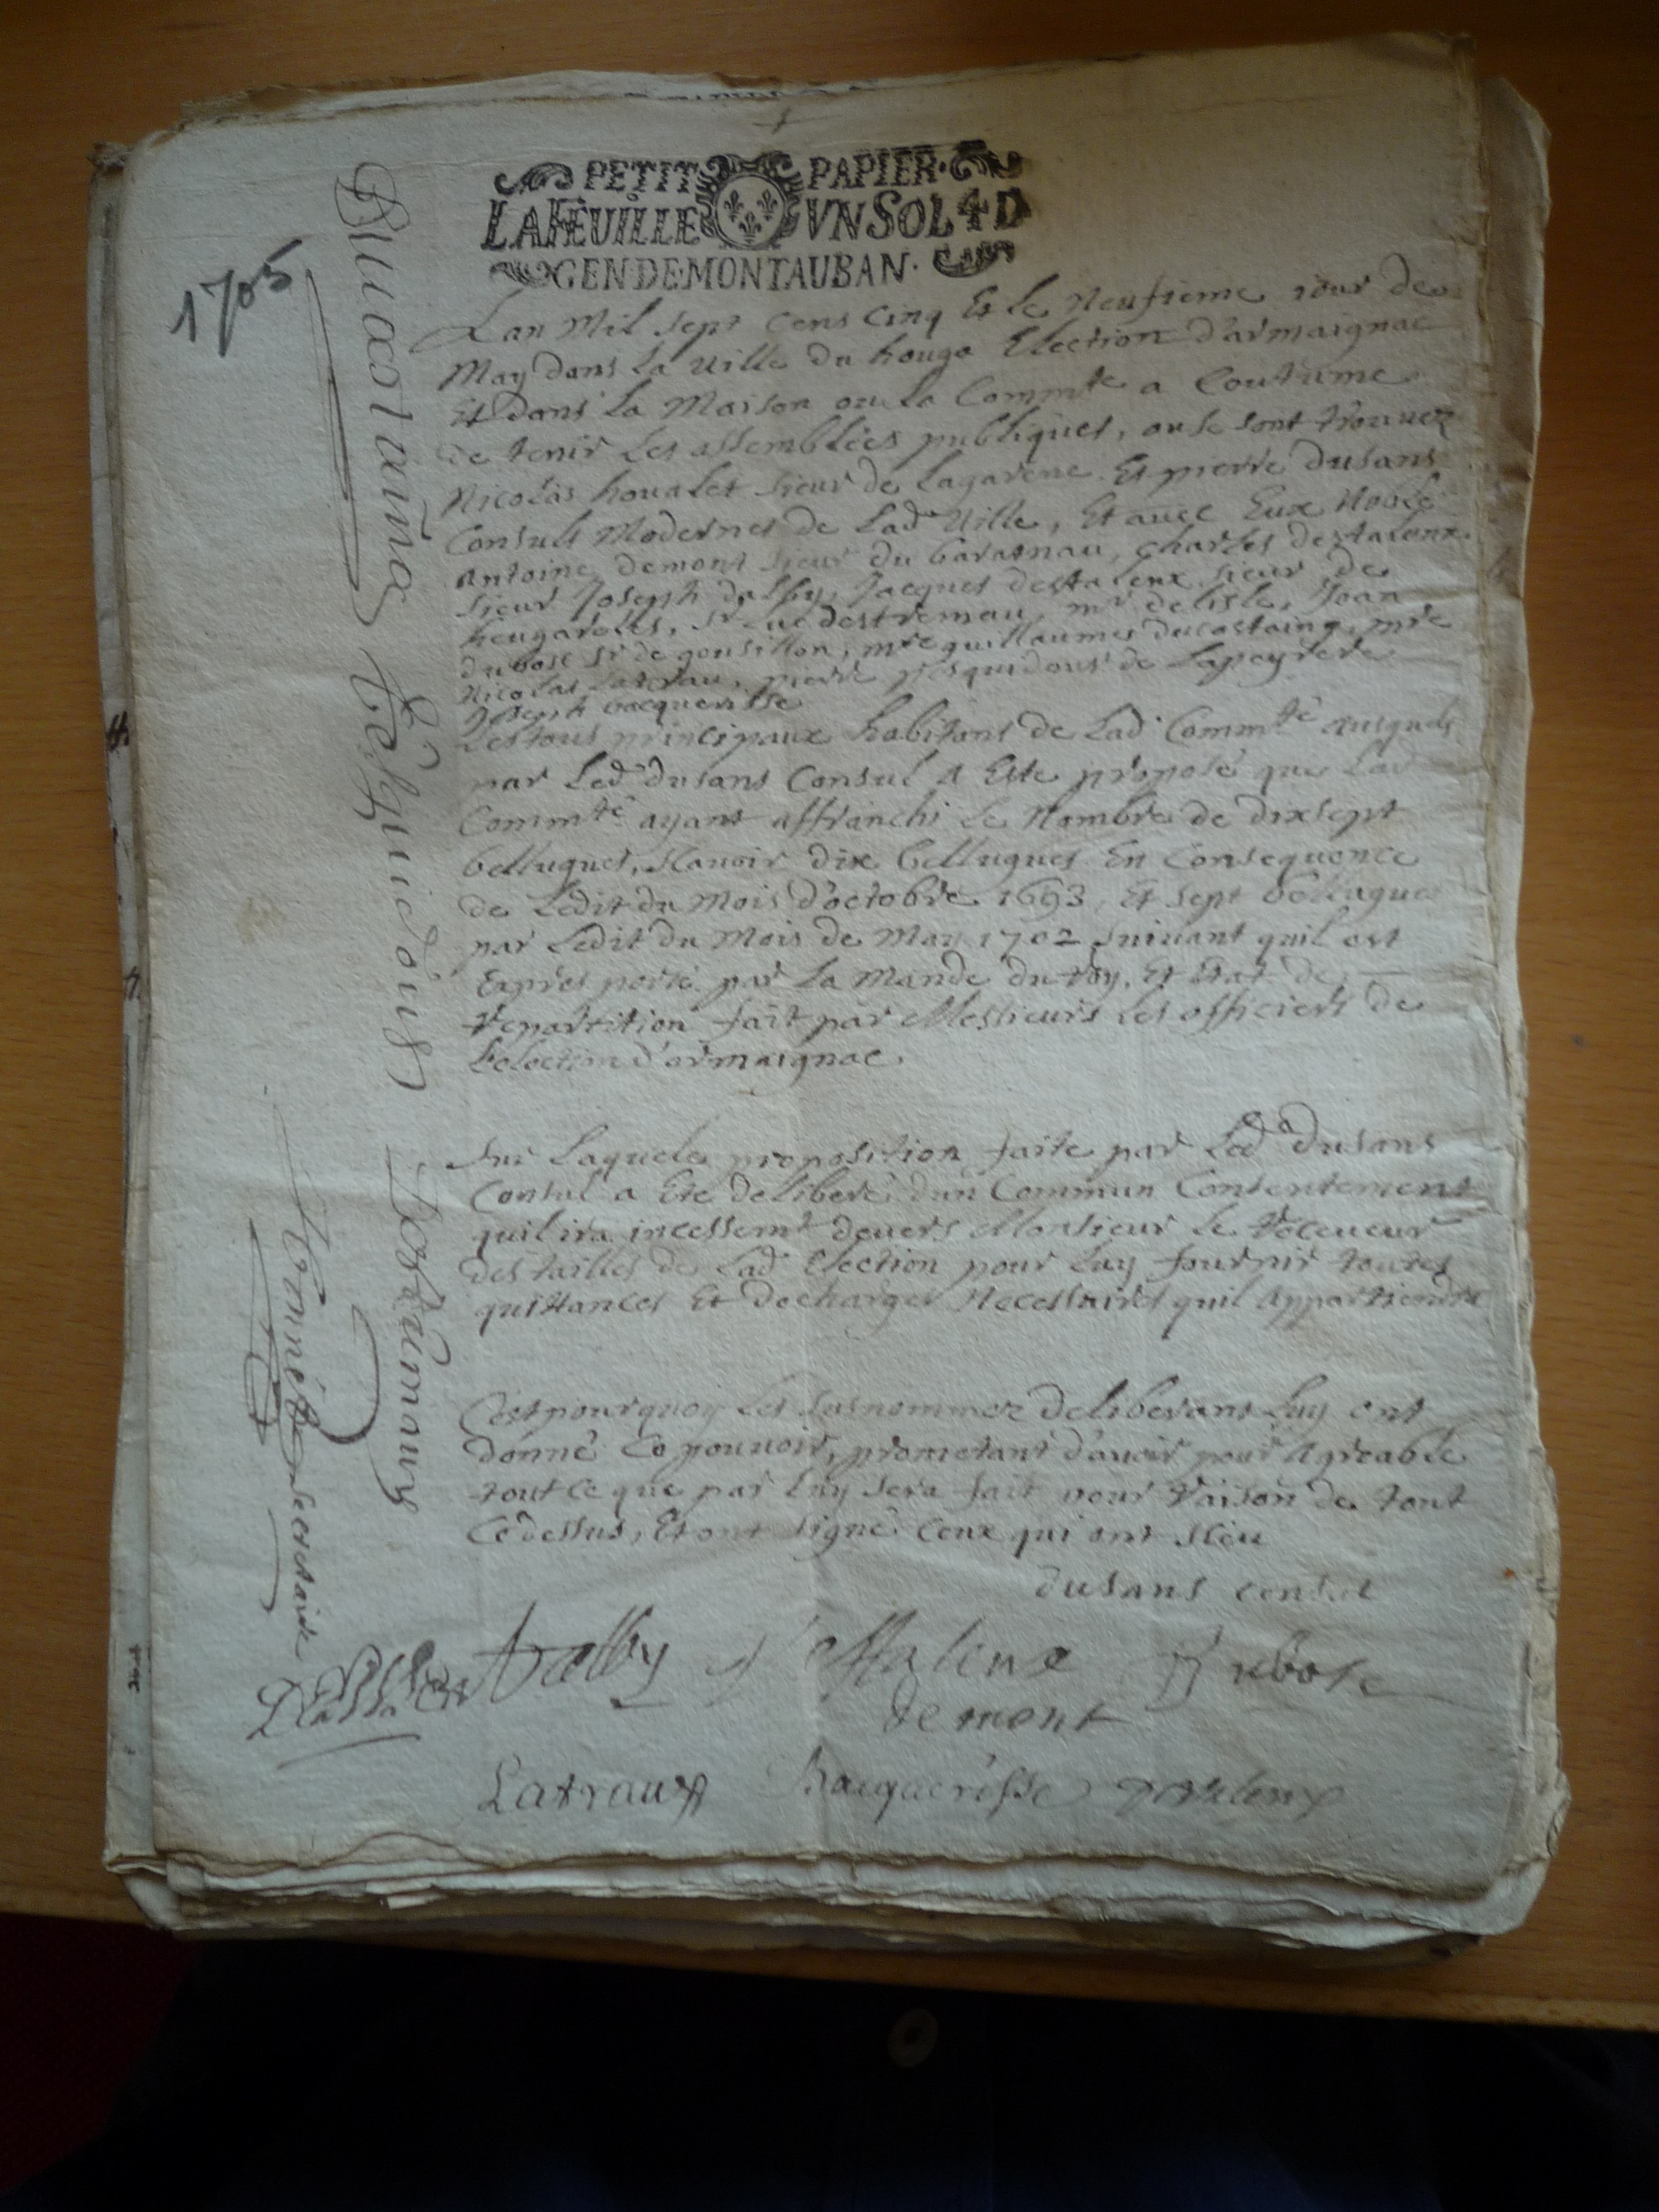 PETIT PAPIER.
LA FEUILLE UN SOL 4 D
GEN DE MONTAUBAN.
1705
Lan Mil sept cens cinq Et le Neufieme jour de
May dans la ville du houga Election d'armaignac
Et dans la Maison ou la Commte a Coutume
de tenir les assemblées publiques, ou se sont trouuez
Nicolas houalet sieur de Lagarene Et pierre dusans
Consuls Modernes de Lade Ville, Et auec Eux Noble
Antoine demont sieur du , Charles destalenx
sieur Joseph dalby, Jacques destalenx sieur de
heugaroles, sr Luc destremau, mr delisle, Joan
dubosc sr de gousillon, mre guillaumes ducastaing, mre
Nicolas Latrau, pierre pesquidous de Lapeyrere
Joseph bacquerisse
Les tous principaux habitans de Lad Commté ausquels
par Led dusans Consul A Este proposé que Lad
Commté ayant affranchi le Nombre de dixsept
bellugues, scauoir dix bellugues En Consequence
de Ledit du Mois d'octobre 1693, Et sept bellugues
par Ledit du Mois de May 1702 suiuant quil est
Expres porté par la Mande du Roy, Et Etat de
repartition fait par Messieurs les officiers de
Lelection d'armaignac.
Sur Laquele proposition faite par Led dusans
Consul a Eté deliberé dun Commun Consentement
quil ira incessemt deuers Monsieur le Receueur
des tailles de Lad Election pour Luy fournir toutes
quittances Et decharges Necessaires quil Appartiendra
Cestpourquoy les susnommez deliberans Luy ont
donné Ce pouuoir, prometant d'auoir pour Agreable
tout ce que par Luy sera fait pour raison de tout
Ce dessus, Et ont signé Ceux qui ont sceu
dusans consul
Dalby destalenx Dubosc
demont
Latrau Bacquerisse destalenx
Ducastaing
Pesquidous
Destremau
secretaire